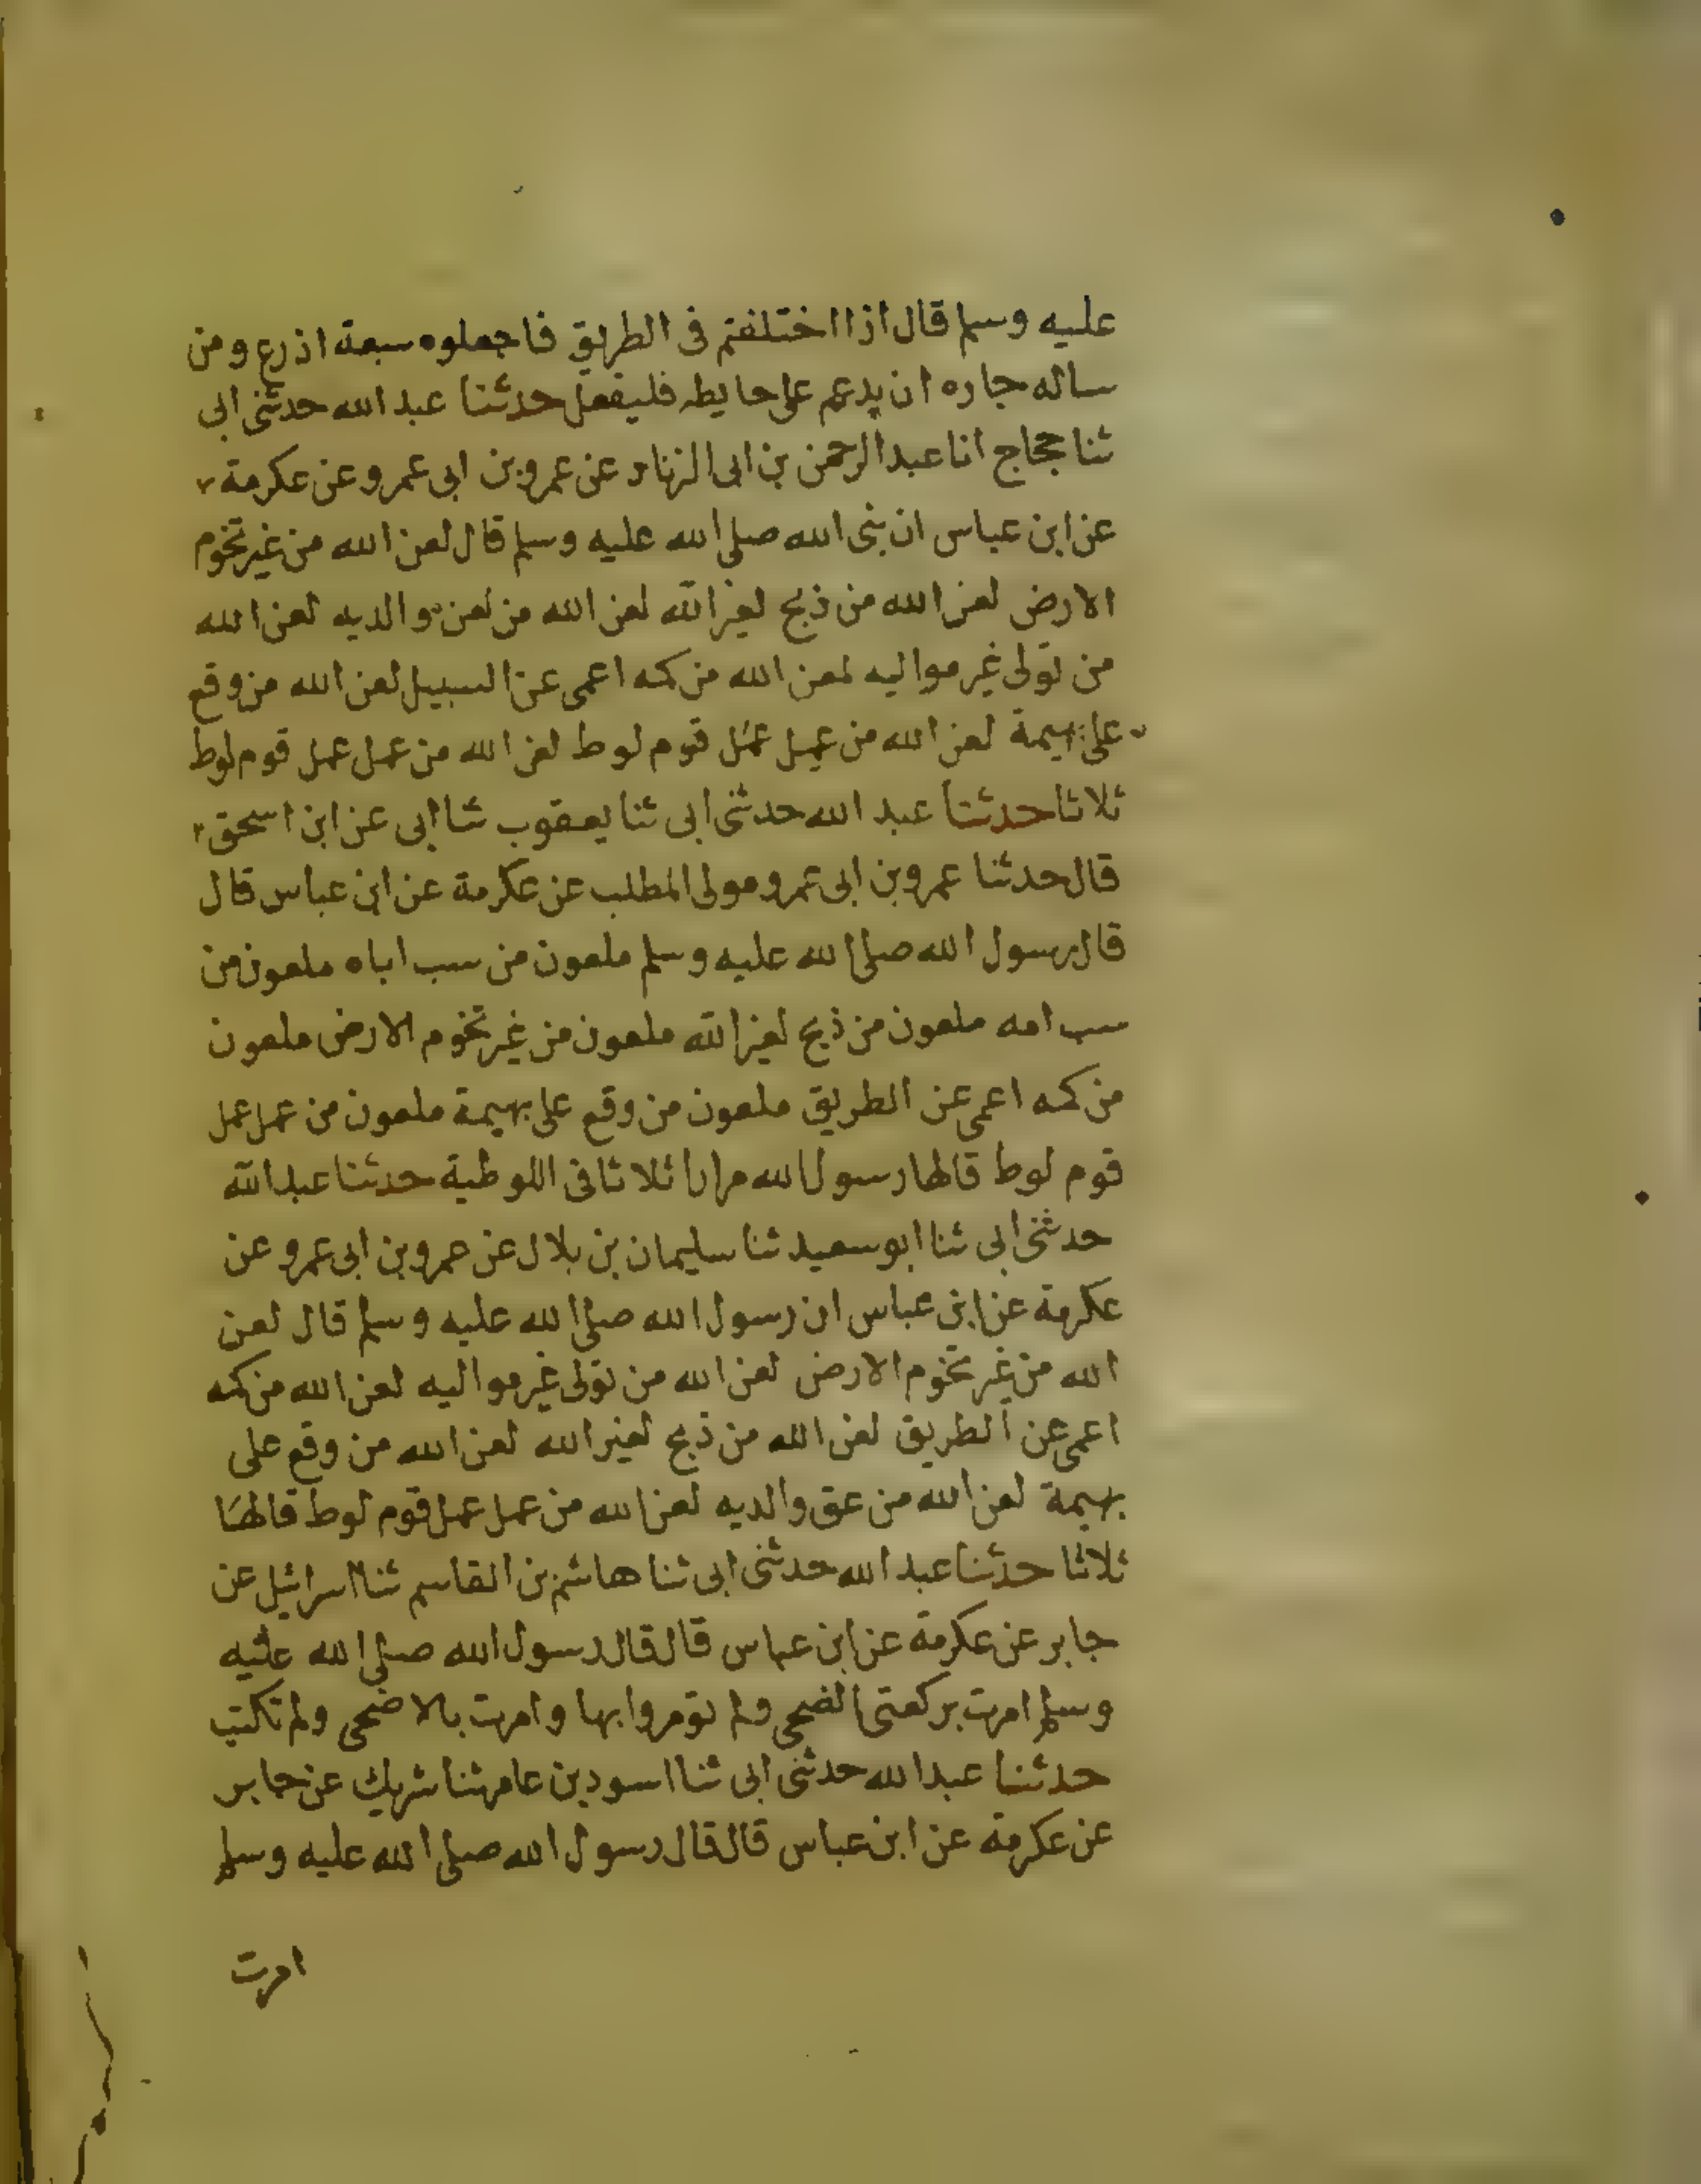 عليه وسلم قال اذا اختلفتم فى الطريق فاجعلوه سبعة اذرع ومن
ساله جاره ان يدعم على حايطه فليفعل حدثنا عبد الله حدثنى ابى
ثنا حجاج انا عبد الرحمن بن ابى الزناد عن عمرو بن ابى عمرو عن عكرمة
عن ابن عباس ان نبى الله صلى الله عليه وسلم قال لعن الله من غير تخوم
الارض لعن الله من ذبح لغير الله لعن الله من لعن والديه لعن الله
من تولى غير مواليه لعن الله من كمه اعمى عن السبيل لعن الله من وقع
على بهيمة لعن الله من عمل عمل قوم لوط لعن الله من عمل عمل قوم لوط
ثلاثا حدثنا عبد الله حدثنى ابى ثنا يعقوب ثنا ابى عن ابن اسحق
قال حدثنا عمرو بن ابى عمرو مولى المطلب عن عكرمة عن ابن عباس قال
قال رسول الله صلى الله عليه وسلم ملعون من سب اباه ملعون من
سب امه ملعون من ذبح لغير الله ملعون من غير تخوم الارض ملعون
من كمه اعمى عن الطريق ملعون من وقع على بهيمة ملعون من عمل عمل
قوم لوط قالها رسول الله مرارا ثلاثا فى اللوطية حدثنا عبد الله
حدثنى ابى ثنا ابو سعيد ثنا سليمان بن بلال عن عمرو بن ابى عمرو عن
عكرمة عن ابن عباس ان رسول الله صلى الله عليه وسلم قال لعن
الله من غير تخوم الارض لعن الله من تولى غير مواليه لعن الله من كمه
اعمى عن الطريق لعن الله من ذبح لغير الله لعن الله من وقع على
بهيمة لعن الله من عق والديه لعن الله من عمل عمل قوم لوط قالها
ثلاثا حدثنا عبد الله حدثنى ابى ثنا هاشم بن القاسم ثنا اسرائيل عن
جابر عن عكرمة عن ابن عباس قال قال رسول الله صلى الله عليه
وسلم امرت بركعتى الضحى ولم تومروا بها وامرت بالاضحى ولم تكتب
حدثنا عبد الله حدثنى ابى ثنا اسود بن عامر ثنا شريك عن جابر
عن عكرمة عن ابن عباس قال قال رسول الله صلى الله عليه وسلم
امرت